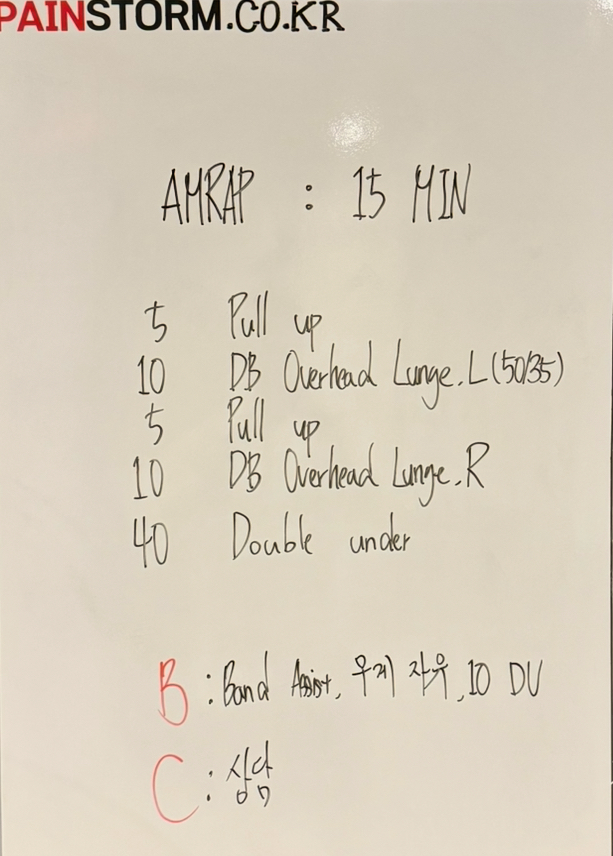 PAINSTORM.CO.KR
AMRAP : 15 MIN
5 Pull up
10 DB Overhead Lunge.L (50/35)
5 Pull up
10 DB Overhead Lunge.R
40 Double under
B : Band Assist, 무게 자유, 10 DU
C : 상담